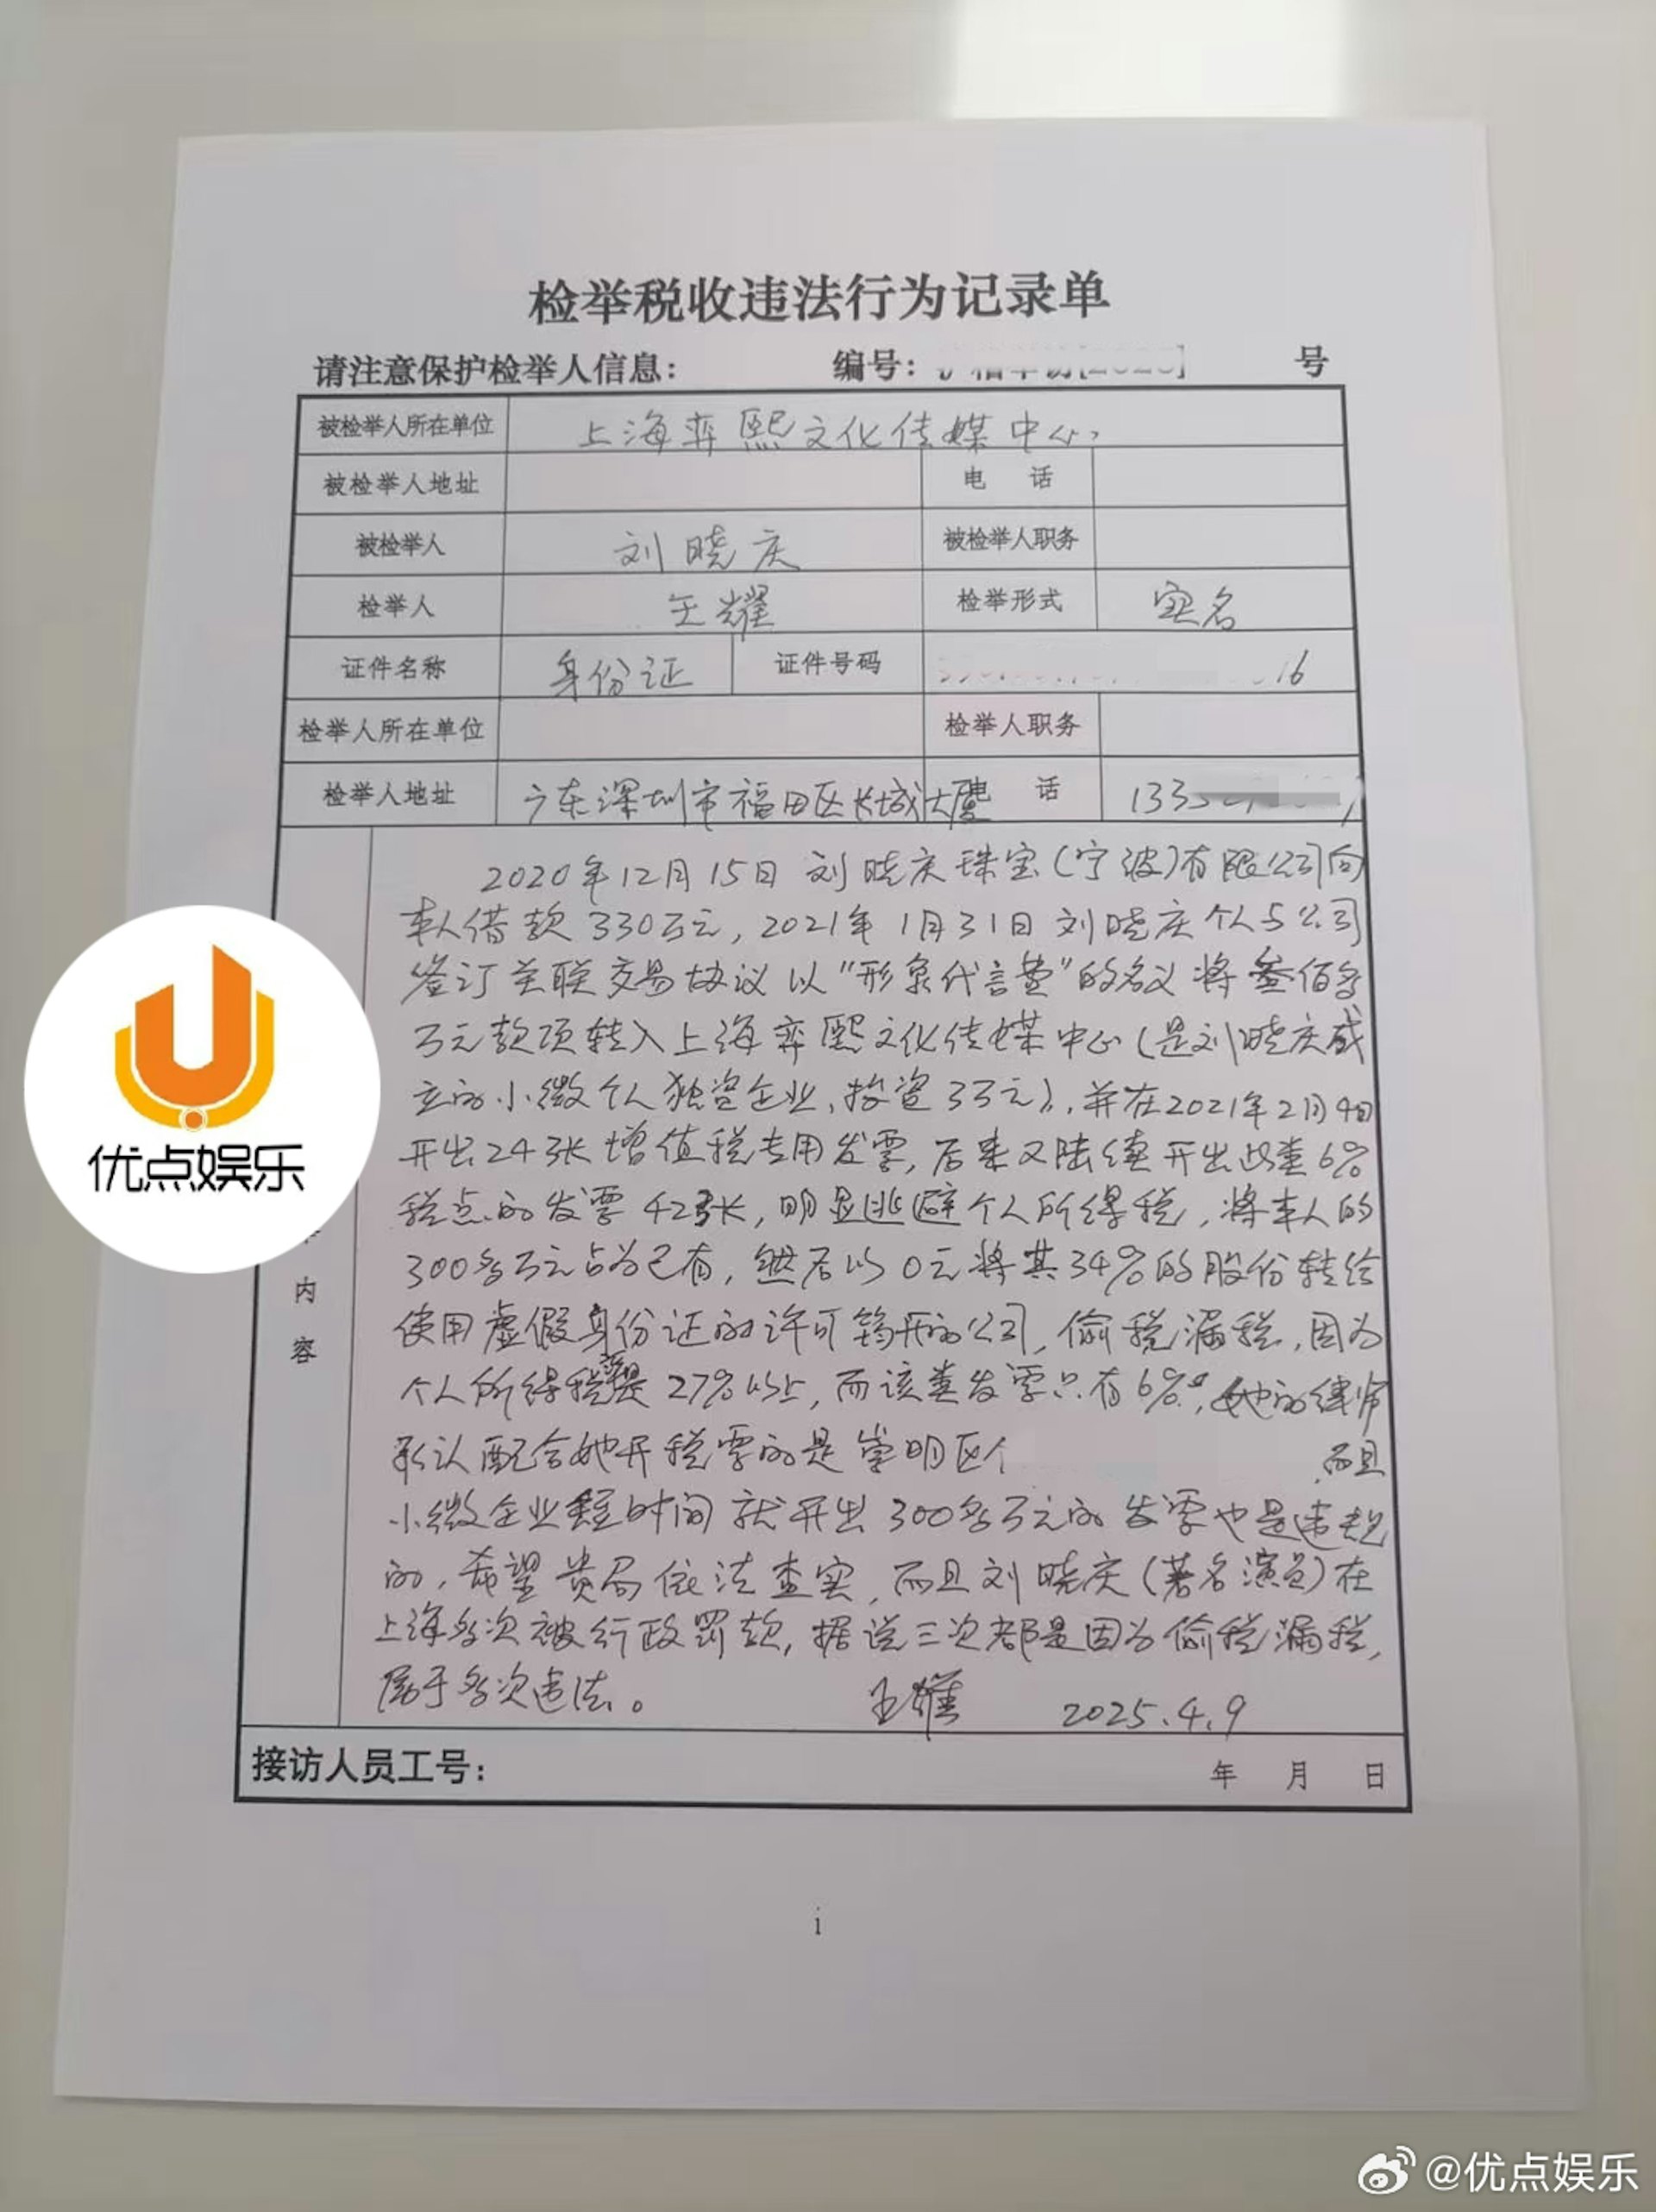 检举税收违法行为记录单
请注意保护检举人信息: 编号: [2025] 号
被检举人所在单位 上海弈熙文化传媒中心
被检举人地址 电 话
被检举人 刘晓庆 被检举人职务
检举人 王耀 检举形式 实名
证件名称 身份证 证件号码 16
检举人所在单位 检举人职务
检举人地址 广东深圳市福田区长城大厦 电 话 133
2020年12月15日刘晓庆珠宝(宁波)有限公司向
本人借款330万元,2021年1月31日刘晓庆个人与公司
签订关联交易协议以"形象代言费"的名义将叁佰多
万元款项转入上海弈熙文化传媒中心(是刘晓庆成
立的小微个人独资企业,投资3万元),并在2021年2月4日
开出24张增值税专用发票,后来又陆续开出此类6%
税点的发票42张,明显逃避个人所得税,将本人的
300多万元占为己有,然后以0元将其34%的股份转给
使用虚假身份证的许可筠开的公司,偷税漏税,因为
个人所得税率是27%以上,而该类发票只有6%,她的律师
承认配合她开税票的是崇明区 而且
小微企业短时间就开出300多万元的发票也是违规
的,希望贵局依法查实,而且刘晓庆(著名演员)在
上海多次被行政罚款,据说三次都是因为偷税漏税,
属于多次违法。 王耀 2025.4.9
内
容
接访人员工号: 年 月 日
i
优点娱乐
@优点娱乐